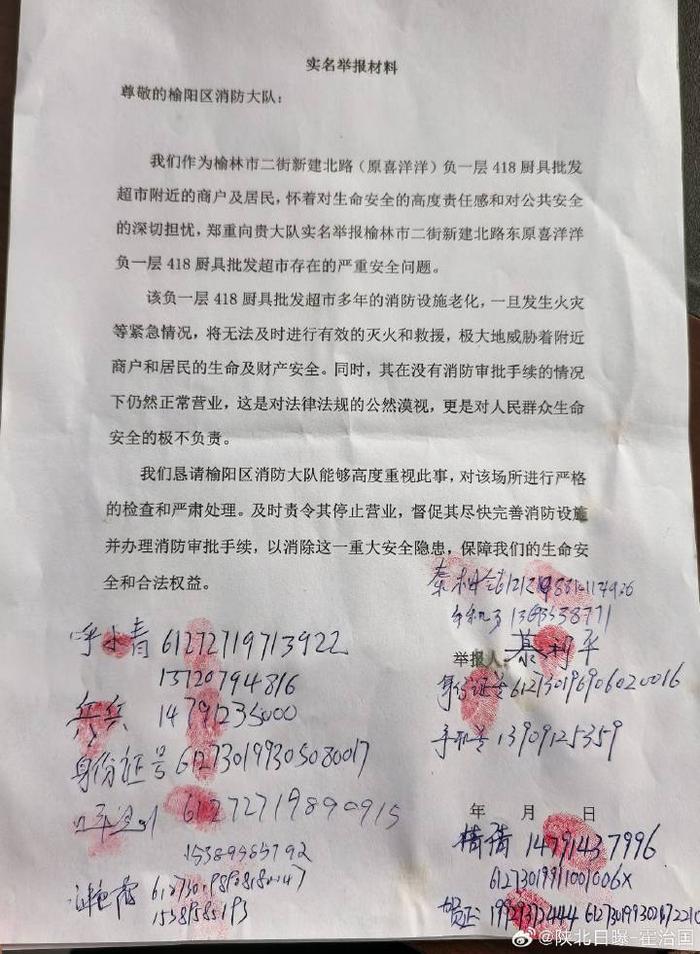 实名举报材料
尊敬的榆阳区消防大队：
我们作为榆林市二街新建北路（原喜洋洋）负一层 418 厨具批发
超市附近的商户及居民，怀着对生命安全的高度责任感和对公共安全
的深切担忧，郑重向贵大队实名举报榆林市二街新建北路东原喜洋洋
负一层 418 厨具批发超市存在的严重安全问题。
该负一层 418 厨具批发超市多年的消防设施老化，一旦发生火灾
等紧急情况，将无法及时进行有效的灭火和救援，极大地威胁着附近
商户和居民的生命及财产安全。同时，其在没有消防审批手续的情况
下仍然正常营业，这是对法律法规的公然漠视，更是对人民群众生命
安全的极不负责。
我们恳请榆阳区消防大队能够高度重视此事，对该场所进行严格
的检查和严肃处理。及时责令其停止营业，督促其尽快完善消防设施
并办理消防审批手续，以消除这一重大安全隐患，保障我们的生命安
全和合法权益。
举报人：慕利平
身份证号 612730196906020016
手机号 13909125359
14791235000
身份证号 612730199305080017
年 月 日
14791437996
61273019911001006X
@陕北日曝-霍治国